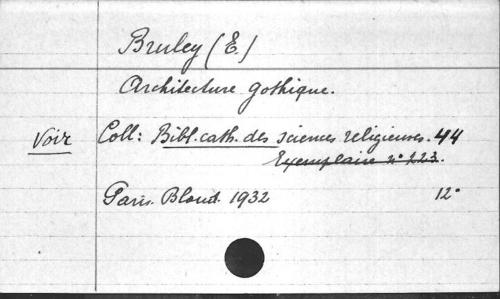 Bruley (E.)
Architecture gothique.
Voir Coll: Bibl. cath. des sciences religieuses. 44
Exemplaire n° 223.
Paris. Bloud. 1932 12°